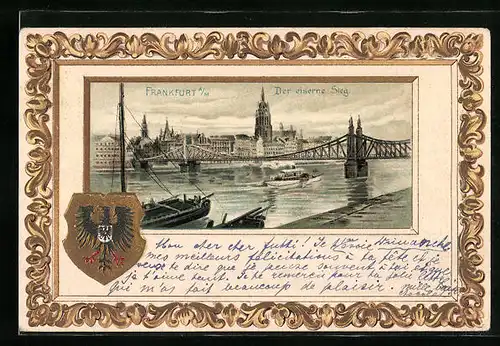 FRANKFURT a/M
Der eiserne Steg
Mon cher cher futti! Je t'envoie Dimanche
mes meilleurs félicitations à ta fête et je
te dire que je pense souvent à toi et que
je t'aime tant. Je te remercie pour ta
qui m'as fait beaucoup de plaisir. mille